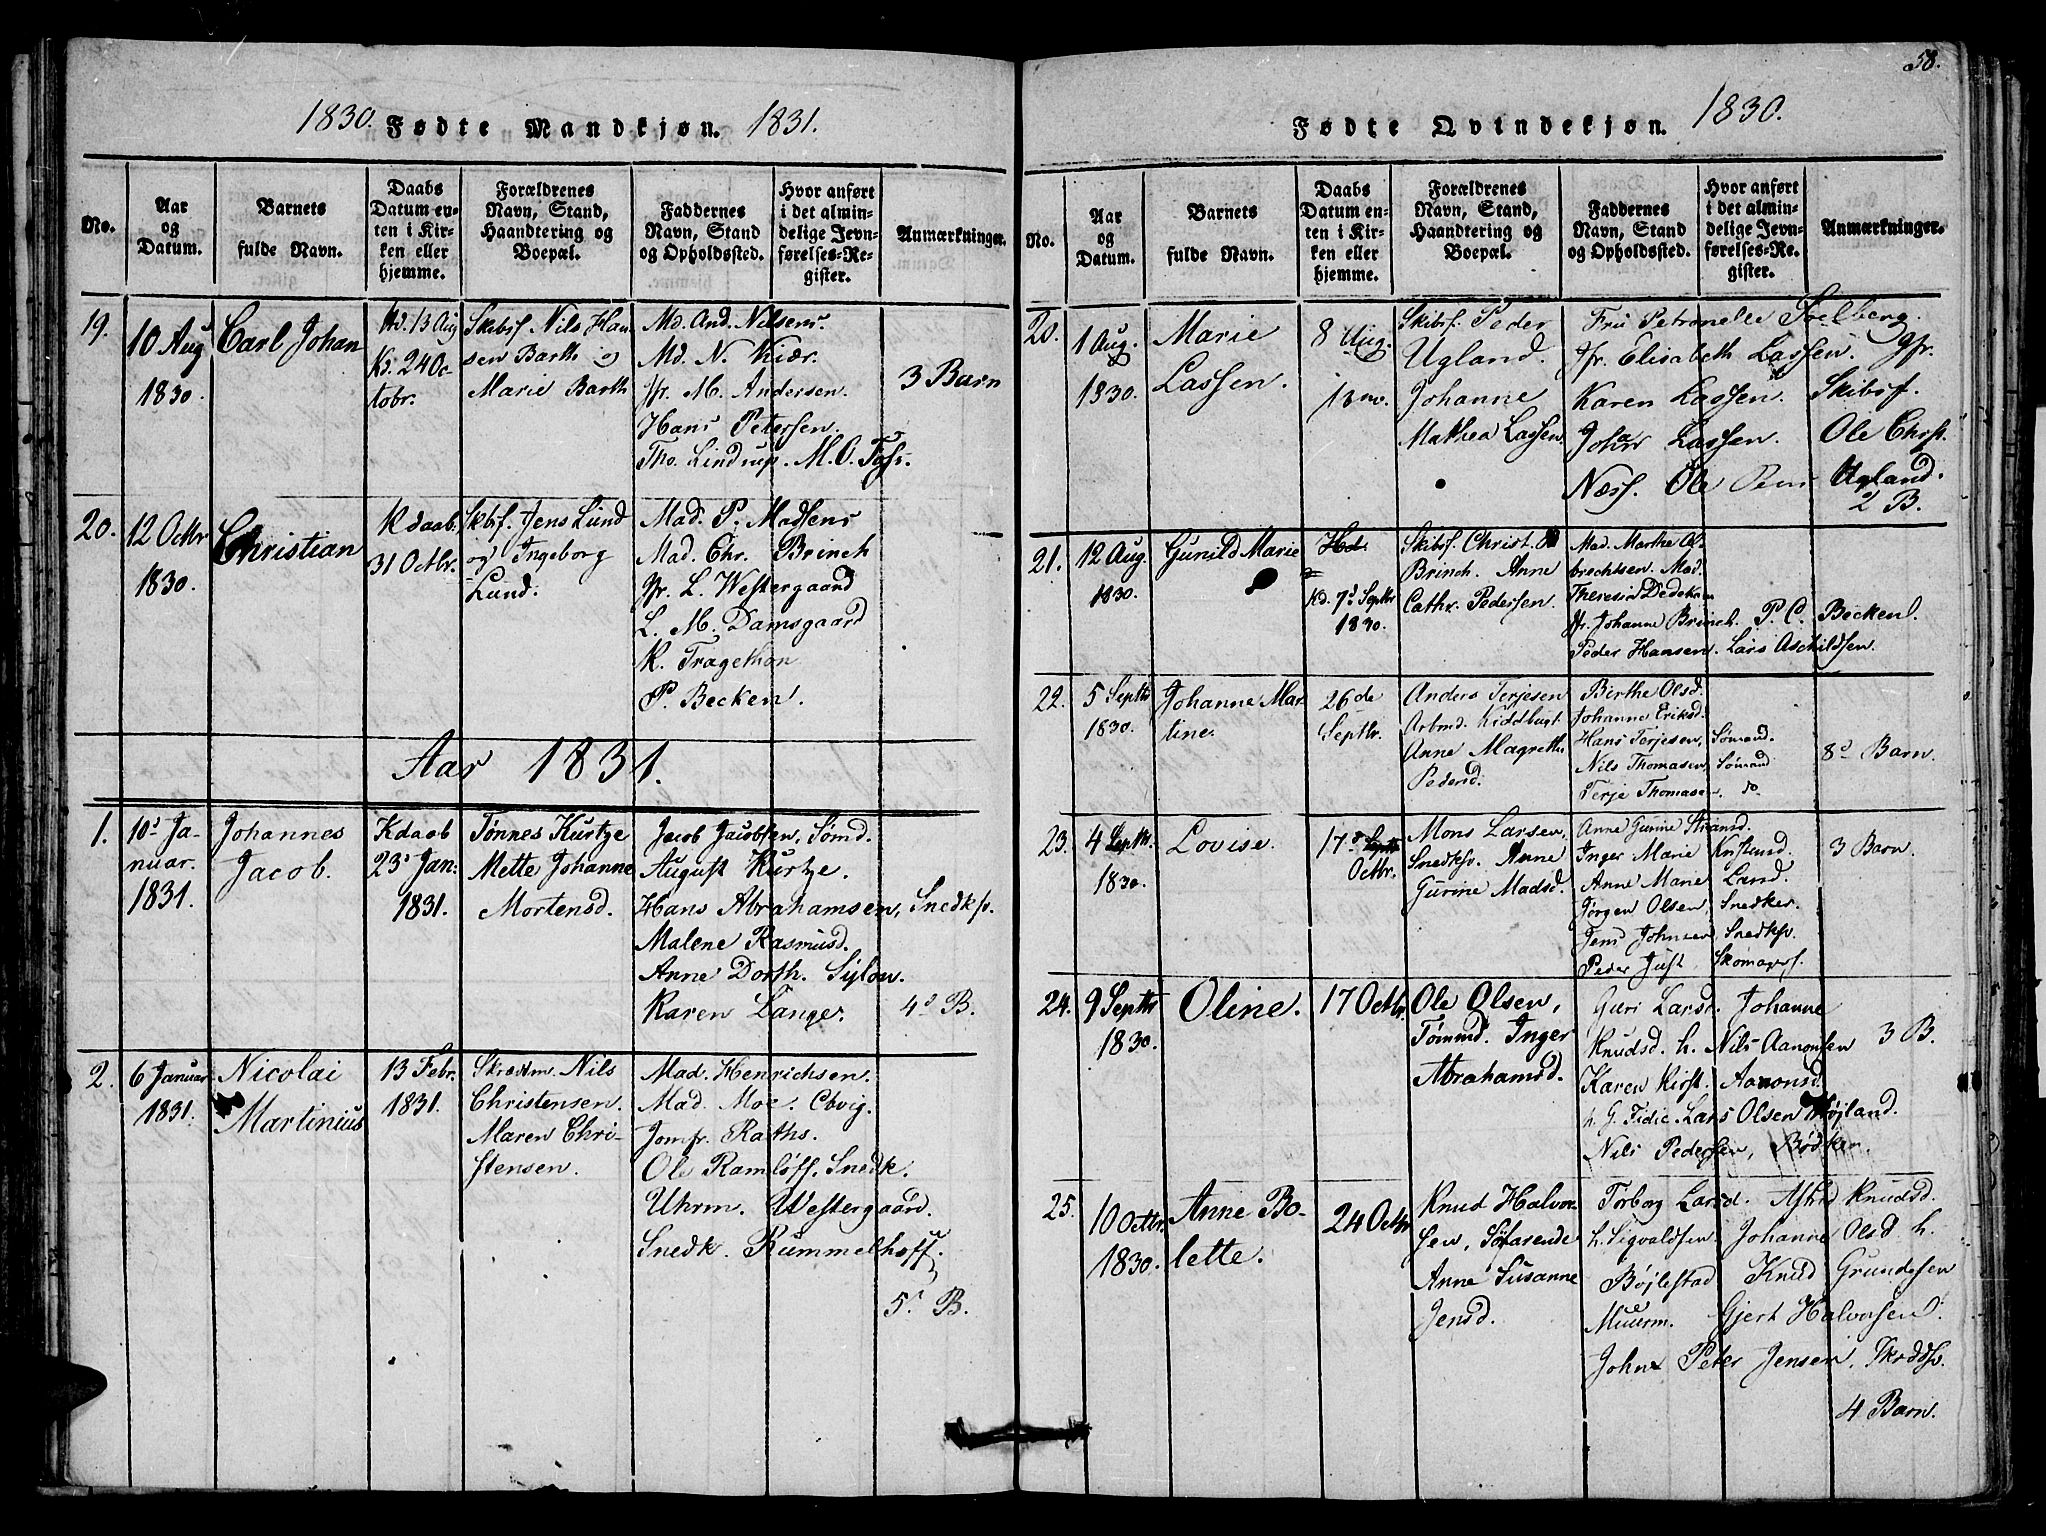 1830. Fødte Mandkjøn. 1831.
No.
Aar
og
Datum.
Barnets
fulde Navn.
Daabs
Datum en-
ten i Kir-
ken eller
hjemme.
Forældrenes
Navn, Stand,
Haandtering og
Boepæl.
Faddernes
Navn, Stand
og Opholdssted.
Hvor anført
i det almin-
delige Jevn-
førelses-Re-
gister.
Anmærkninger.
19.
10 Aug
1830.
Carl Johan
Hd. 13 Aug
Kd. 24 Oc-
tobr.
Skibsf. Nils Han
sen Barth og
Marie Barth
Md. And. Nilsens.
Md. N. Kiær.
Jfr. M. Andersen.
Hans Petersen.
Tho. Lindrup. M. O.
3 Barn
20.
12 Octbr
1830.
Christian
K daab.
31 Octbr.
Skbsf. Jens Lund
og Ingeborg
Lund.
Mad. P. Madsens
Mad. Chr. Brinch
Jfr. L. Westergaard
L. M. Damsgaard
K. Tragethon
P. Becken.
Aar 1831.
1.
10d Ja-
nuar.
1831.
Johannes
Jacob.
K daab
23d Jan:
1831.
Tønnes Kurtze
Mette Johanne
Mortensd.
Jacob Jacobsen, Sømd.
August Kurtze.
Hans Abrahamsen, Snedksv.
Malene Rasmusd.
Anne Dorth. Sylow.
Karen Lange.
4d B.
2.
6 Januar
1831.
Nicolai
Martinius
13 Febr.
1831.
Skrædm. Nils
Christensen.
Maren Chri-
stensen.
Mad. Henrichsen.
Mad. Moe.
Jomfr. Raths.
Ole Ramløff. Snedk.
Uhrm. Westergaard.
Snedk. Rummelhoff.
5t B.
58.
Fødte Qvindekjøn. 1830.
No.
Aar
og
Datum.
Barnets
fulde Navn.
Daabs
Datum en-
ten i Kir-
ken eller
hjemme.
Forældrenes
Navn, Stand,
Haandtering og
Boepæl.
Faddernes
Navn, Stand
og Opholdssted.
Hvor anført
i det almin-
delige Jevn-
førelses-Re-
gister.
Anmærkninger.
20.
1 Aug.
1830.
Marie
Lassen.
8 Aug.
Skibsf. Peder
Ugland.
Johanne
Mathea Lassen
Fru Petronelle
Jfr. Elisabeth Lassen. Jfr.
Karen Lassen. Skibsf.
Johan Lassen. Ole Christ.
Ole Ugland.
2 B.
21.
12 Aug.
1830.
Gunild Marie
Hd.
Kd. 7d Septbr
1830.
Skibsf. Christ.
Brinch. Anne
Cathr. Pedersen.
Mad. Marthe Al-
brechtsen. Mad.
Theresia Dedekam
Jfr. Johanne Brinch. P. C. Becken.
Peder Hansen. Lars Aschildsen.
22.
5 Septbr
1830.
Johanne Mar-
tine.
26de
Septbr.
Anders Terjesen
Arbmd. Kiddbugt
Anne Magrethe
Pedersd.
Birthe Olsd.
Johanne Eriksd.
Hans Terjesen, Sømand.
Nils Thomasen, Sømand
Terje Thomasen. do
8d Barn.
23.
4 Septbr.
1830.
Lovise.
17d Septbr
Octbr.
Mons Larsen,
Snedksv. Anne
Gurine Madsd.
Anne Gurine
Inger Marie
Anne Marie Larsd.
Jørgen Olsen, Snedker.
Jens Johnsen, Snedksv.
Peder Just, Skomagers.
3 Barn.
24.
9 Septbr
1830.
Oline.
17 Octbr.
Ole Olsen,
Tømmd. Inger
Abrahamsd.
Guri Larsd. Johanne
Knudsd. h. Nils Aanonsen
Karen Kirst. Aanonsd.
h. G. Lars Olsen Højland.
Nils Pedersen, Bødker.
3 B.
25.
10 Octbr.
1830.
Anne Bo-
lette.
24 Octbr
Knud Halvor-
sen, Søfarende
Anne Susanne
Jensd.
Torborg Larsd. Knudsd.
h. Sigvaldsen Johanne Olsd. h.
Bøjlestad Knud Grundesen
Muurm. Gjert Halvorsen.
John Peter Jensen.
4 Barn.